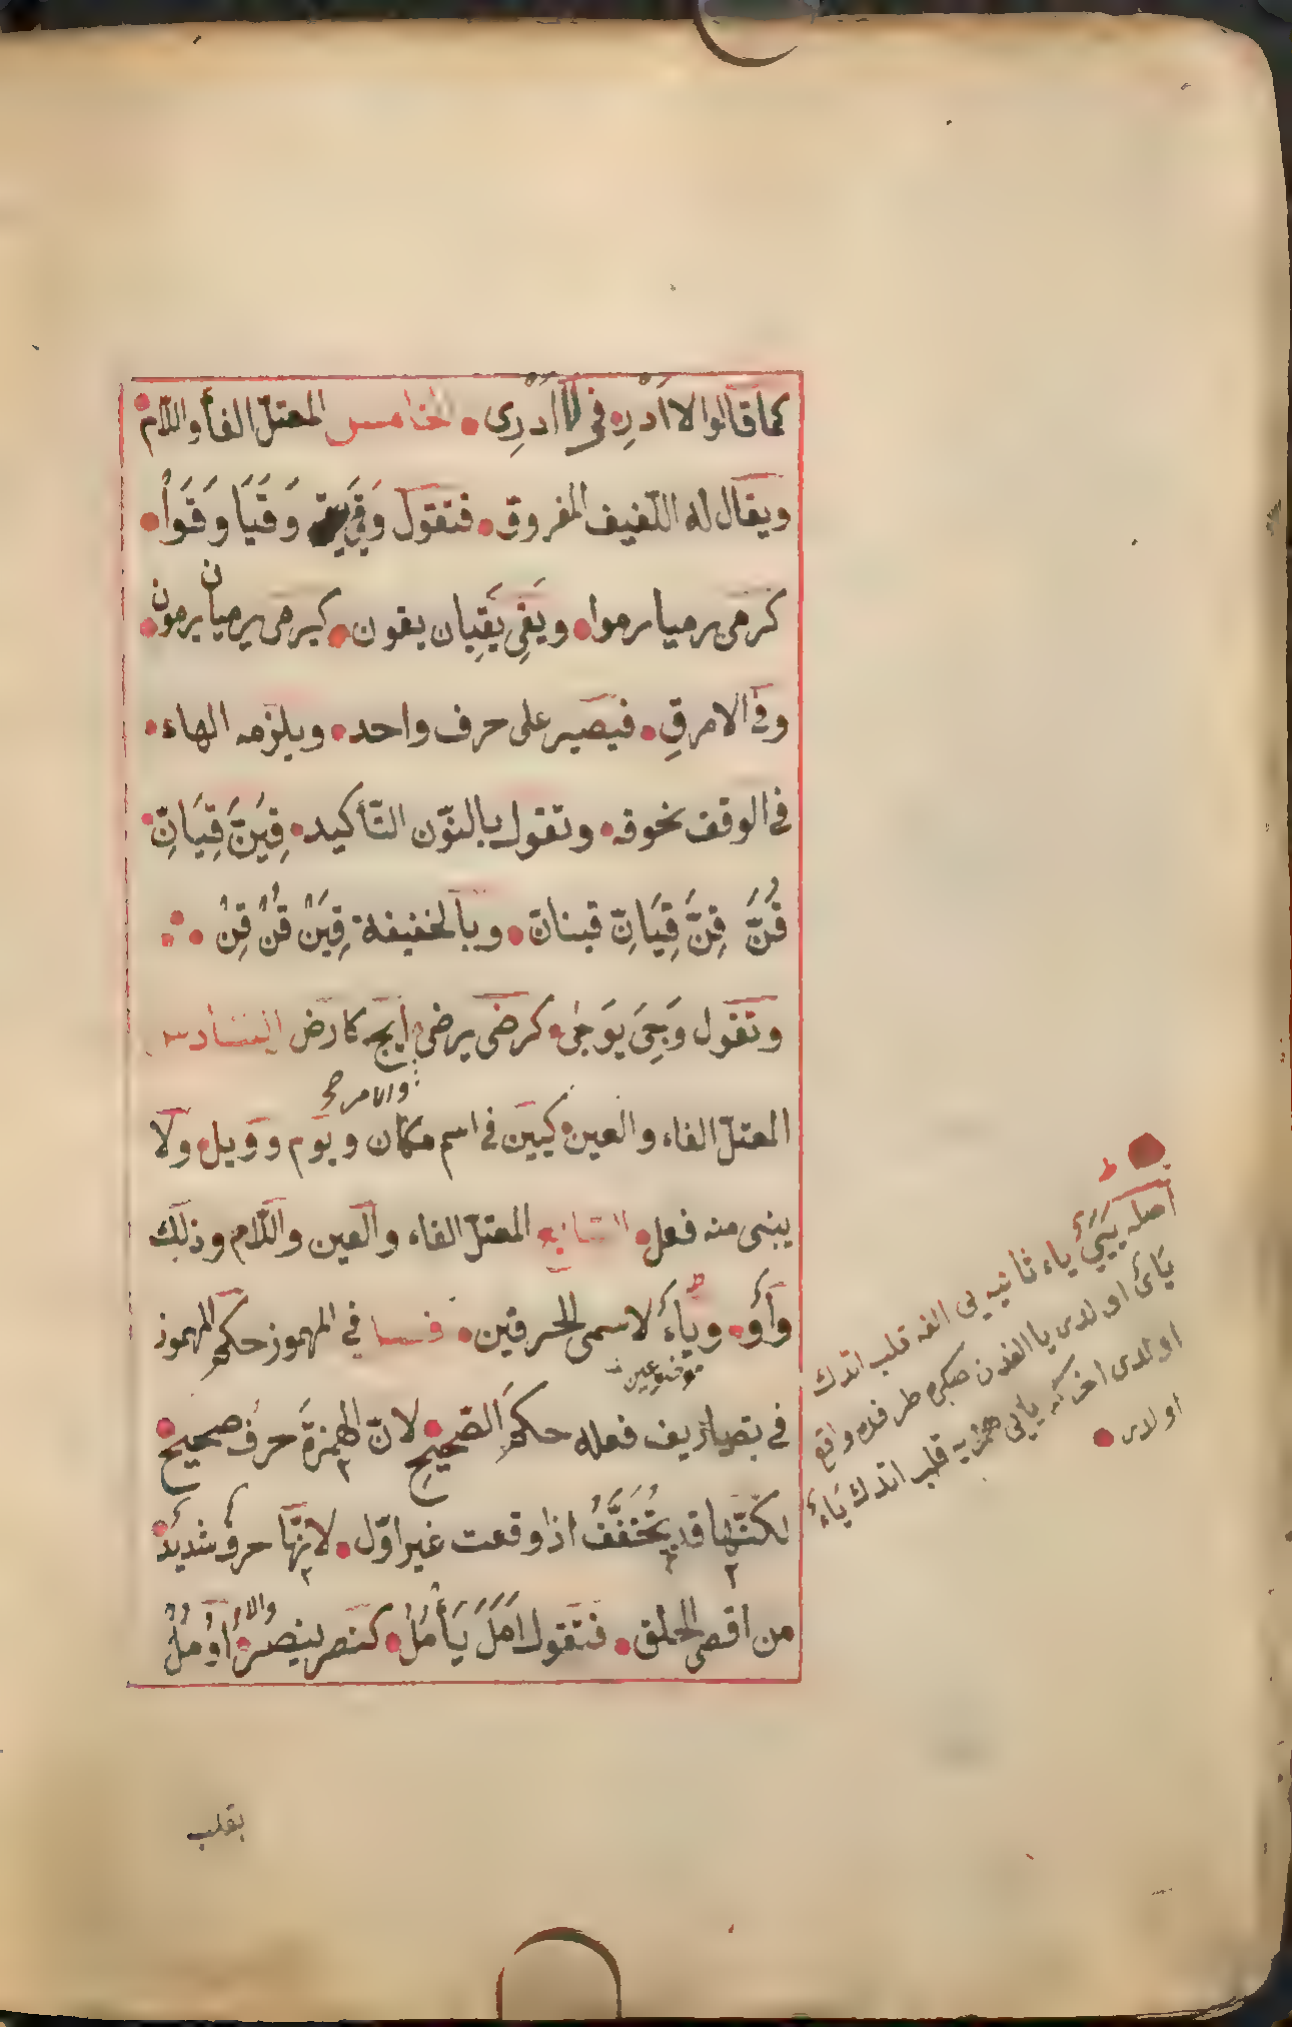 كما قالوا لا اَدْرِ في لا اَدْرِى الخامس المعتلّ الفاء واللّام
ويقال له اللّفيف المفروق فتقول وَقَى وَقَيَا وَقَوْا
كرمى رميا رموا ويَقِى يَقِيان يقون كيرمى يرميان يرمون
وفى الامر قِ فيصير على حرف واحد ويلزمه الهاء
فى الوقف نحو قه وتقول بالنّون التّأكيد قِيَنَّ قِيَانِّ
قُنَّ قِنَّ قِيَانِّ قينانّ وبالخفيفة قِيَنْ قُنْ قِنْ
وتقول وَجِىَ يَوْجٰى كرضى يرضى ايج كارض السّادس
والامر
المعتلّ الفاء والعين كيين فى اسم مكان ويوم وويل ولا
يبنى منه فعل السّابع المعتلّ الفاء والعين واللّام وذلك
وَاَوْ ويَاءٌ لاسمى الحرفين فصل في المهموز حكم المهموز
موضوعين
فى تصاريف فعله حكم الصّحيح لانّ الهمزةَ حرف صحيح
لكنّها قد تُخَفَّفُ اذا وقعت غير اوّل لانّها حرفٌ شديدٌ
من اقصى الحلق فتقول اَمَلَ يَأْمُلُ كنصر ينصر والا اُوْمُلْ
يقلب
اصله يَيَىٌ ياء ثانيه يى الفه قلب اتدك
يَاىٌ اولدى يا الفدن صكره طرفده واقع
اولدى يايى همزيه قلب اتدك يَاءٌ
اولدى